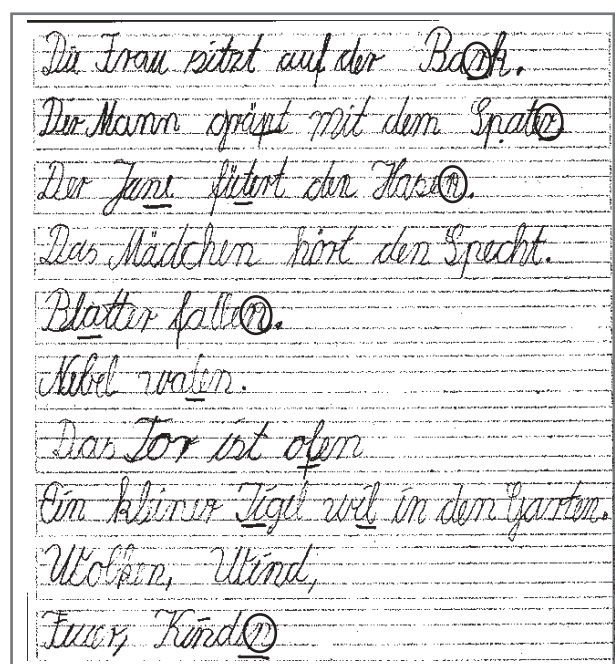 Die Frau sitzt auf der Bank.
Der Mann gräpt mit dem Spaten
Der Jane fütert den Hasen.
Das Mädchen hört den Specht.
Blatter fallen.
Nebel walen.
Das Tor ist ofen
Ein kleiner Tigel wil in den Garten.
Wolken, Wind,
Fuer, Kinden